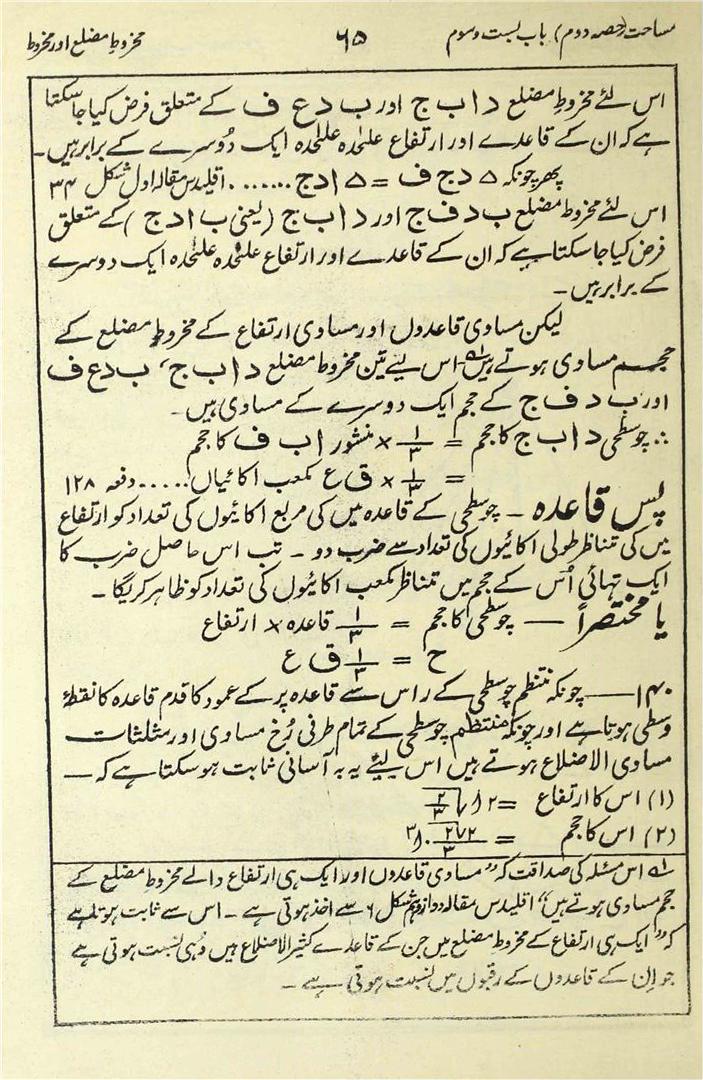 مساحت (حصہ دوم) باب بست و سوم ۶۵ مخروطِ مضلع اور مخروط
اس لئے مخروطِ مضلع د ا ب ج اور ب د ع ف کے متعلق فرض کیا جا سکتا
ہے کہ ان کے قاعدے اور ارتفاع علیحٰدہ علیحٰدہ ایک دُوسرے کے برابر ہیں۔
پھر چونکہ ۵ د ج ف = ۵ ا د ج ....... اقلیدس مقالہ اول شکل ۳۴
اس لئے مخروط مضلع ب د ف ج اور د ا ب ج (یعنی ب ا د ج) کے متعلق
فرض کیا جا سکتا ہے کہ ان کے قاعدے اور ارتفاع علیحٰدہ علیحٰدہ ایک دوسرے
کے برابر ہیں۔
لیکن مساوی قاعدوں اور مساوی ارتفاع کے مخروطِ مضلع کے
حجم مساوی ہوتے ہیں؂۱ اس لیئے تین مخروط مضلع د ا ب ج، ب د ع ف
اور ب د ف ج کے حجم ایک دوسرے کے مساوی ہیں۔
∴ چوسطحی د ا ب ج کا حجم = ۱/۳ × منشور ا ب ف کا حجم
= ۱/۳ × ق ع مکعب اکائیاں..... دفعہ ۱۲۸
پس قاعدہ ۔ چوسطحی کے قاعدہ میں کی مربع اکائیوں کی تعداد کو ارتفاع
میں کی متناظر طولی اکائیوں کی تعداد سے ضرب دو ۔ تب اس حاصل ضرب کا
ایک تہائی اُس کے حجم میں متناظر مکعب اکائیوں کی تعداد کو ظاہر کریگا ۔
یا مختصراً — چوسطحی کا حجم = ۱/۳ قاعدہ × ارتفاع
ح = ۱/۳ ق ع
۱۴۰ — چونکہ منتظم چوسطحی کے راس سے قاعدہ پر کے عمود کا قدم قاعدہ کا نقطۂ
وسطی ہوتا ہے اور چونکہ منتظم چوسطحی کے تمام طرفی رُخ مساوی اور مثلثات
مساوی الاضلاع ہوتے ہیں اس لیئے یہ بہ آسانی ثابت ہو سکتا ہے کہ —
(۱) اس کا ارتفاع =
(۲) اس کا حجم =
؂۱ اس مسئلہ کی صداقت کہ ”مساوی قاعدوں اور ایک ہی ارتفاع والے مخروط مضلع کے
حجم مساوی ہوتے ہیں“ اقلیدس مقالہ دوازدہم شکل ۶ سے اخذ ہوتی ہے ۔ اس سے ثابت ہوتا ہے
کہ ”ایک ہی ارتفاع کے مخروط مضلع میں جن کے قاعدے کثیر الاضلاع ہیں وہی نسبت ہوتی ہے
جو اِن کے قاعدوں کے رقبوں میں نسبت ہوتی ہے ۔